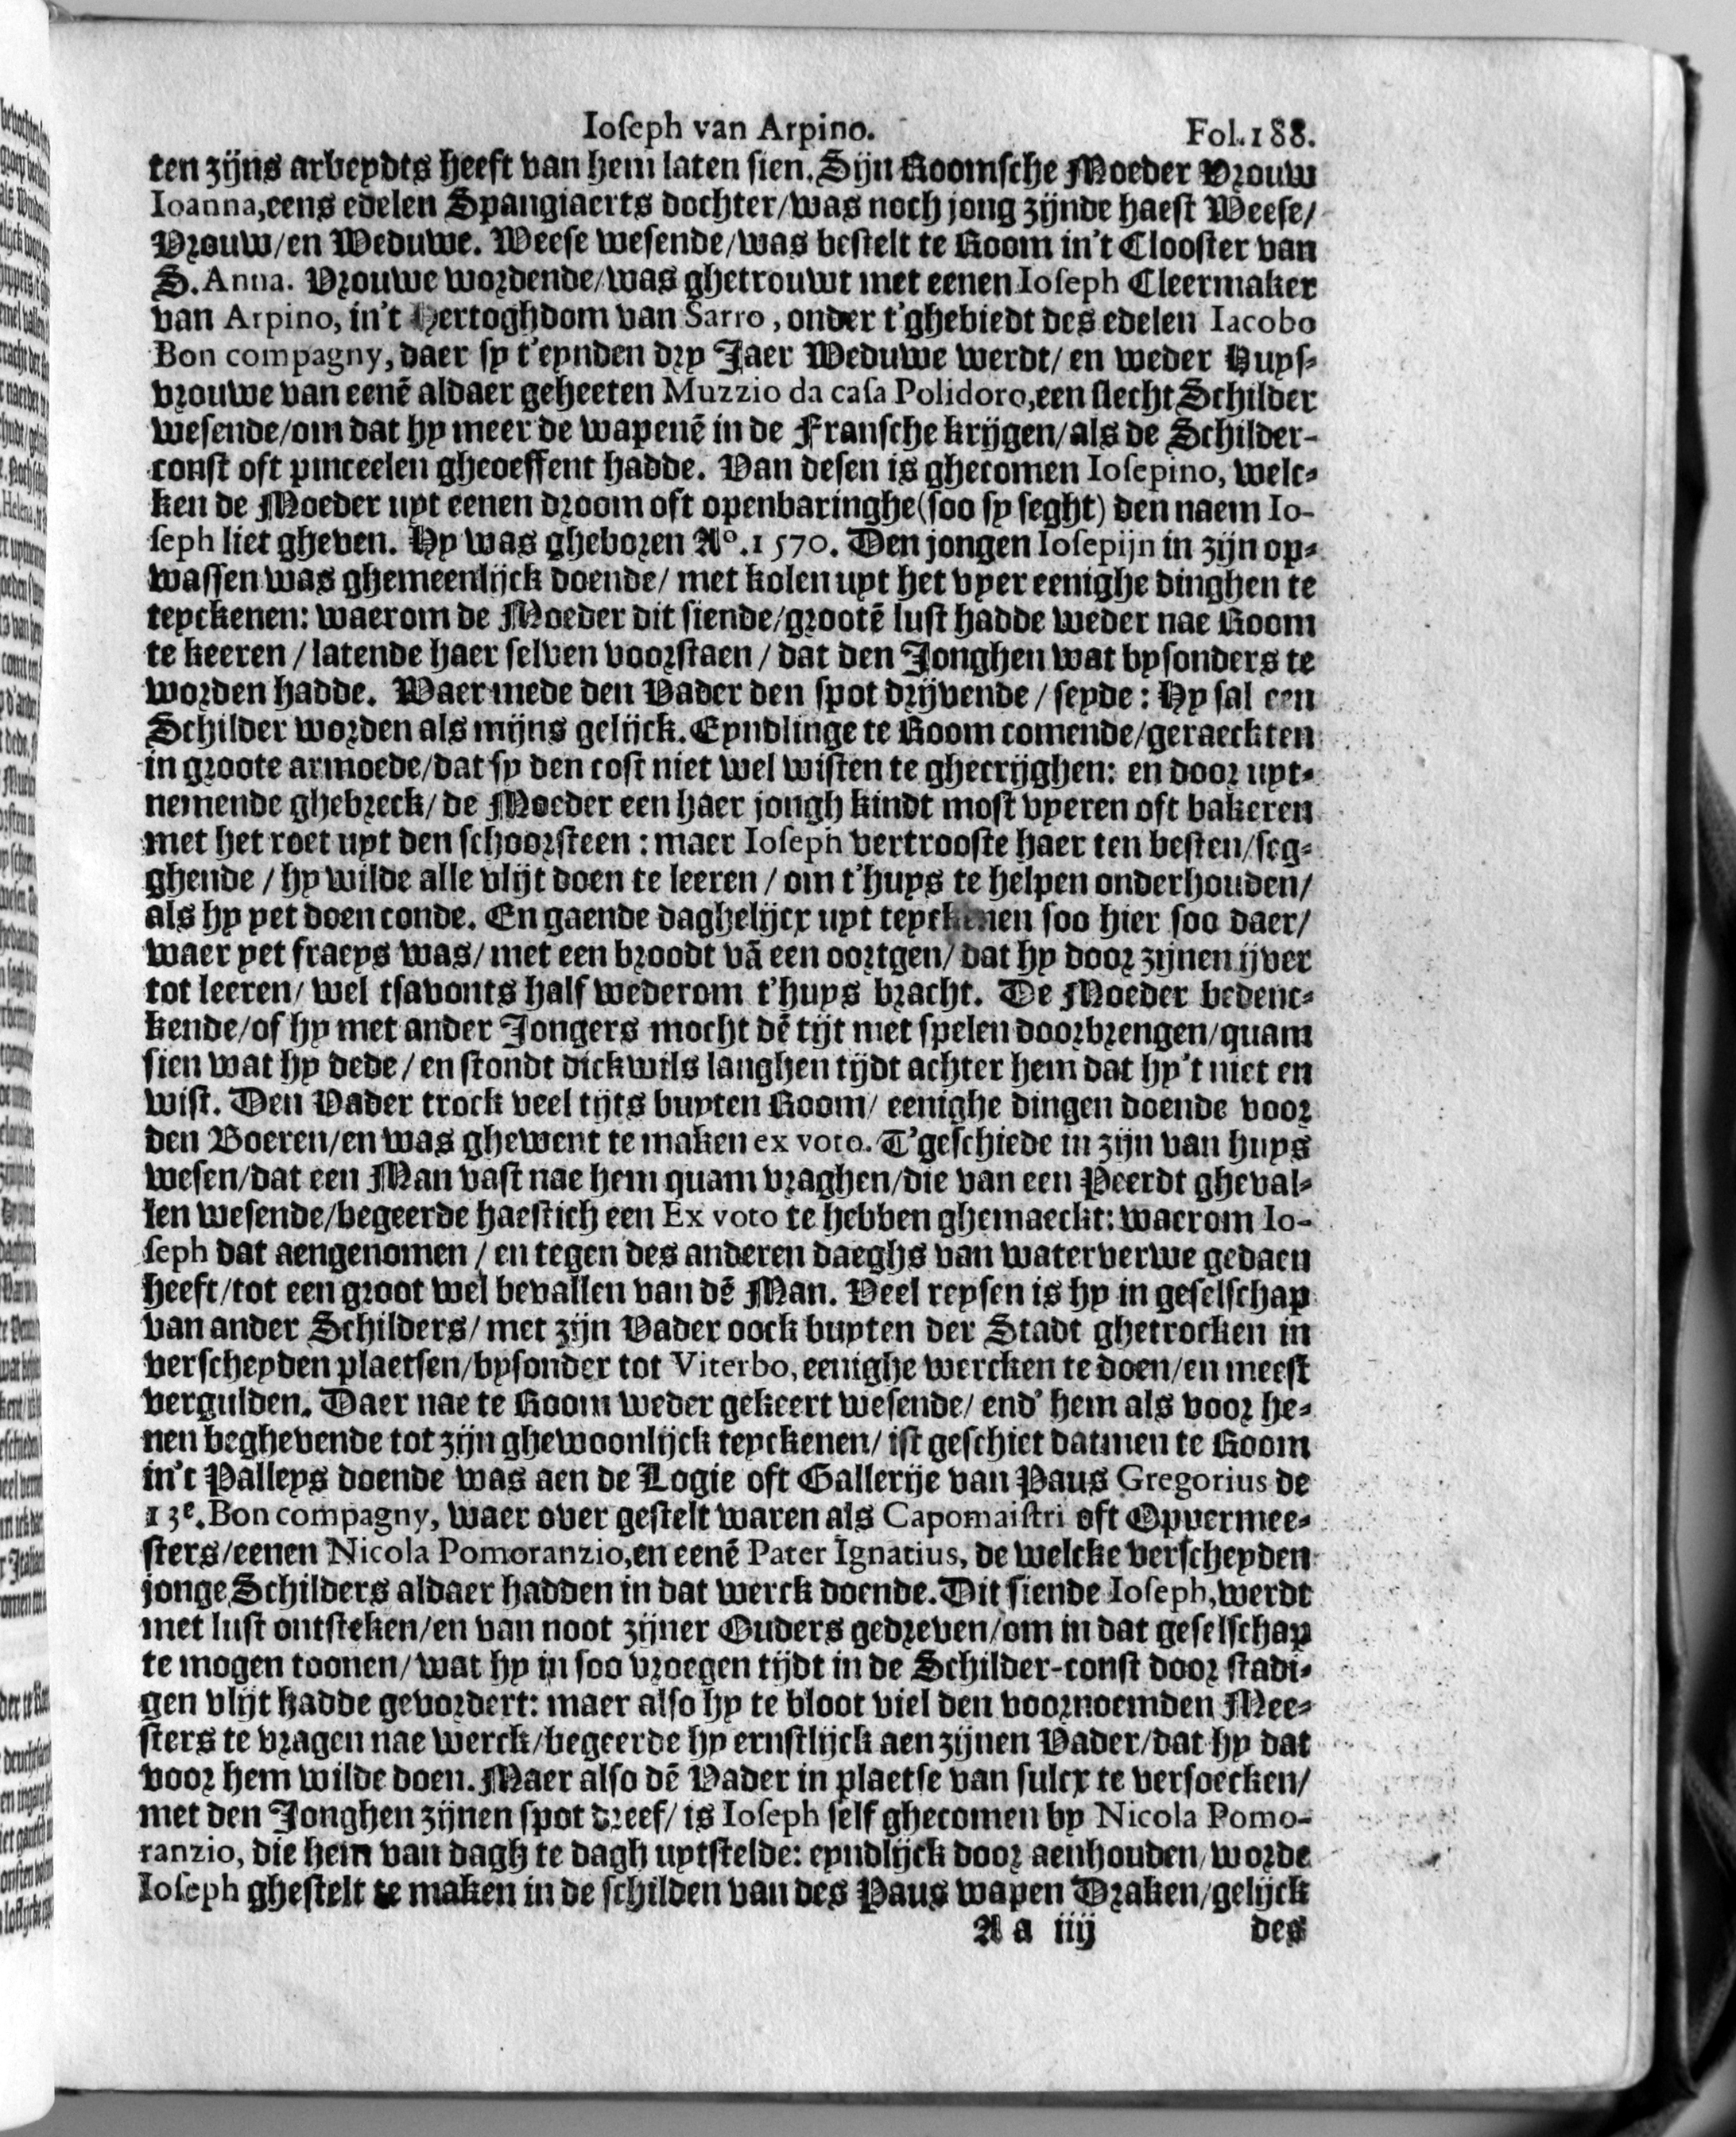 Ioſeph van Arpino. Fol. 188.
ten zijns arbeydts heeft van hem laten sien. Sijn Roomsche Moeder Vrouw
Ioanna, eens edelen Spangiaerts dochter/was noch jong zijnde haest Weese/
Vrouw/en Weduwe. Weese wesende/was bestelt te Room in't Clooster van
S. Anna. Vrouwe wordende/was ghetrouwt met eenen Ioſeph Cleermaker
van Arpino, in't Hertoghdom van Sarro, onder t'ghebiedt des edelen Iacobo
Bon compagny, daer sy t'eynden dry Jaer Weduwe werdt/ en weder Huys-
vrouwe van eenē aldaer geheeten Muzzio da caſa Polidoro, een slecht Schilder
wesende/om dat hy meer de wapenē in de Fransche krijgen/als de Schilder-
const oft pinceelen gheoeffent hadde. Van desen is ghecomen Ioſepino, welc-
ken de Moeder uyt eenen droom oft openbaringhe (soo sy seght) den naem Io-
ſeph liet gheven. Hy was gheboren A°. 1570. Den jongen Ioſepijn in zijn op-
wassen was ghemeenlijck doende/ met kolen uyt het vyer eenighe dinghen te
teyckenen: waerom de Moeder dit siende/grootē lust hadde weder nae Room
te keeren / latende haer selven voorstaen / dat den Jonghen wat bysonders te
worden hadde. Waer mede den Vader den spot drijvende / seyde: Hy sal een
Schilder worden als mijns gelijck. Eyndlinge te Room comende/geraeckten
in groote armoede/dat sy den cost niet wel wisten te ghecrijghen: en door uyt-
nemende ghebreck/ de Moeder een haer jongh kindt most vyeren oft bakeren
met het roet uyt den schoorsteen: maer Ioſeph vertrooste haer ten besten/seg-
ghende / hy wilde alle vlijt doen te leeren / om t'huys te helpen onderhouden/
als hy yet doen conde. En gaende daghelijcx uyt teyckenen soo hier soo daer/
waer yet fraeys was/ met een broodt vā een oortgen/ dat hy door zijnen ijver
tot leeren/ wel tsavonts half wederom t'huys bracht. De Moeder bedenc-
kende/of hy met ander Jongers mocht dē tijt met spelen doorbrengen/quam
sien wat hy dede / en stondt dickwils langhen tijdt achter hem dat hy't niet en
wist. Den Vader trock veel tijts buyten Room/ eenighe dingen doende voor
den Boeren/en was ghewent te maken ex voto. T'geschiede in zijn van huys
wesen/dat een Man vast nae hem quam vraghen/die van een Peerdt gheval-
len wesende/begeerde haestich een Ex voto te hebben ghemaeckt: waerom Io-
ſeph dat aengenomen / en tegen des anderen daeghs van waterverwe gedaen
heeft/tot een groot wel bevallen van dē Man. Veel reysen is hy in geselschap
van ander Schilders/ met zijn Vader oock buyten der Stadt ghetrocken in
verscheyden plaetsen/bysonder tot Viterbo, eenighe wercken te doen/en meest
vergulden. Daer nae te Room weder gekeert wesende/ end' hem als voor he-
nen beghevende tot zijn ghewoonlijck teyckenen/ ist geschiet datmen te Room
in't Palleys doende was aen de Logie oft Gallerije van Paus Gregorius de
13e. Bon compagny, waer over gestelt waren als Capomaiſtri oft Oppermee-
sters/eenen Nicola Pomoranzio, en eenē Pater Ignatius, de welcke verscheyden
jonge Schilders aldaer hadden in dat werck doende. Dit siende Ioſeph, werdt
met lust ontsteken/en van noot zijner Ouders gedreven/om in dat geselschap
te mogen toonen/wat hy in soo vroegen tijdt in de Schilder-const door stadi-
gen vlijt hadde gevordert: maer also hy te bloot viel den voornoemden Mee-
sters te vragen nae werck/begeerde hy ernstlijck aen zijnen Vader/dat hy dat
voor hem wilde doen. Maer also dē Vader in plaetse van sulcx te versoecken/
met den Jonghen zijnen spot dreef/ is Ioſeph self ghecomen by Nicola Pomo-
ranzio, die hem van dagh te dagh uytstelde: eyndlijck door aenhouden/worde
Ioſeph ghestelt te maken in de schilden van des Paus wapen Draken/gelijck
A a iiij des